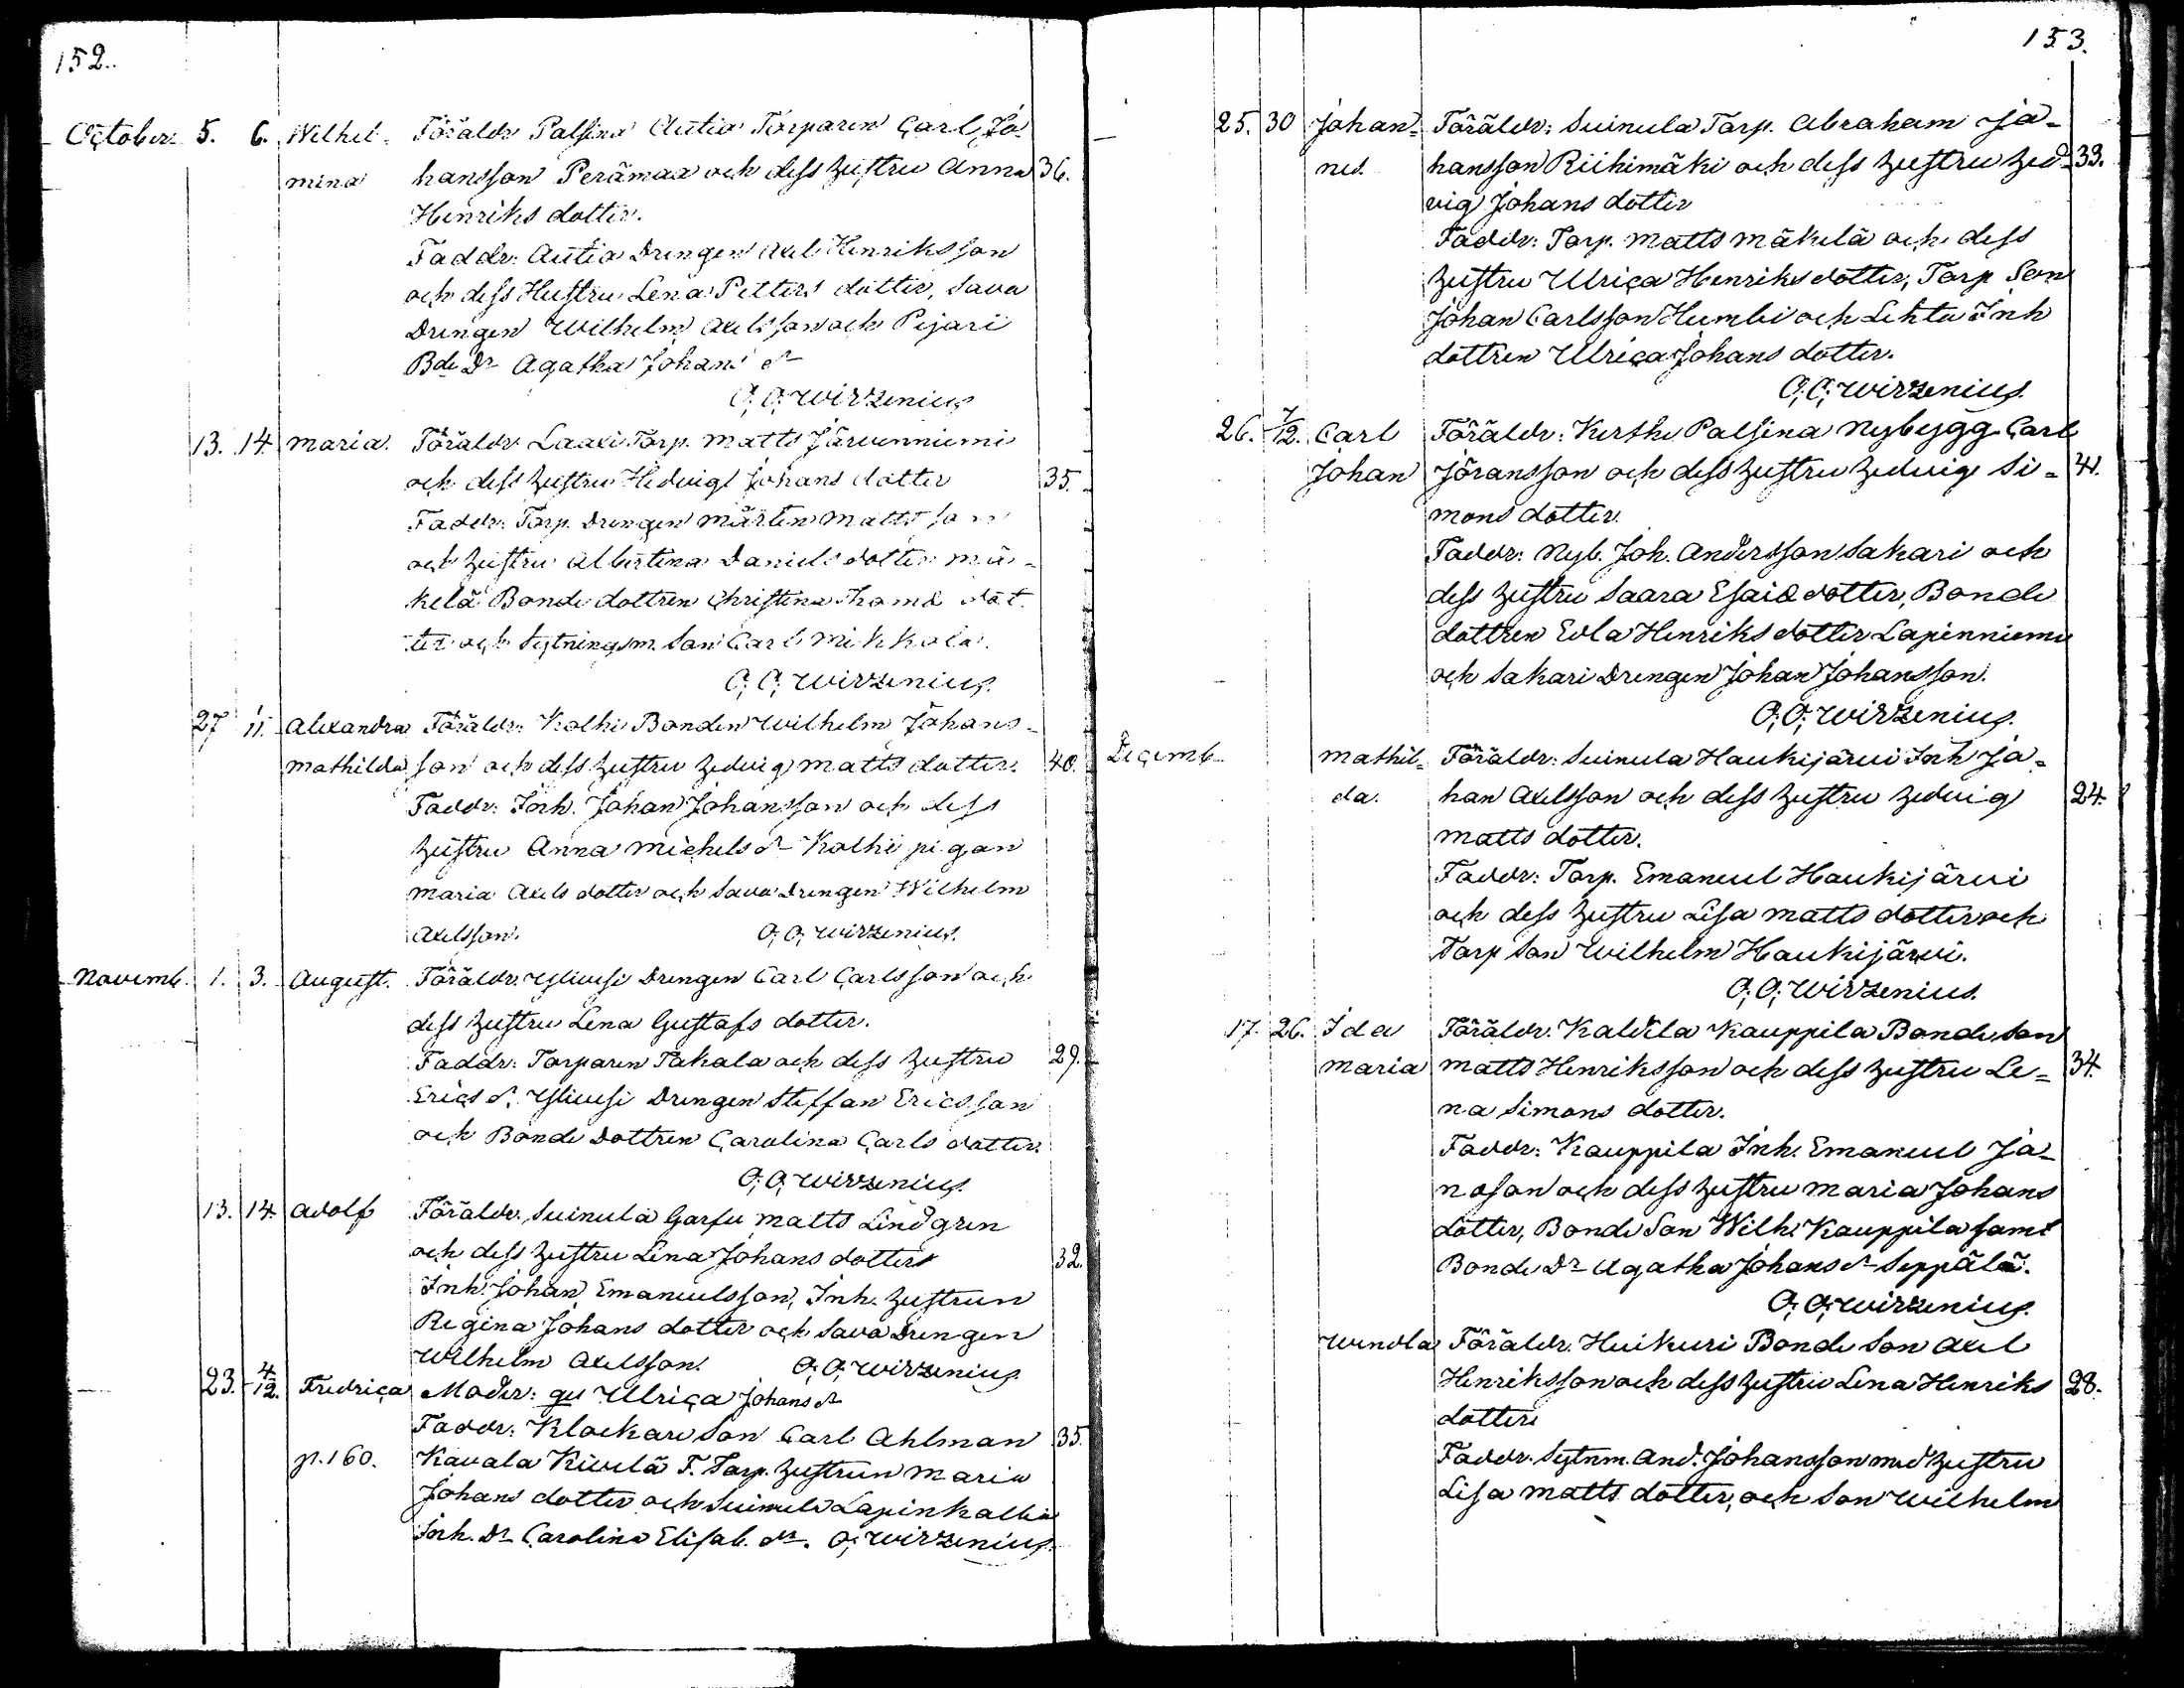 152.
October. 5. 6. Wilhel- Föräldr Palsina Autio Torparen Carl Jo
mina hansson Perämaa och dess Hustru Anna 36.
Henriks dotter.
Faddr: Autio Drengen Axel Henriksson
och dess Hustru Lena Petters dotter, Sava
Drengen Wilhelm Axelsson och Pejari
Bde Dr Agatha Johans dr
O, O, Wirzenius
13. 14. Maria. Föräldr Laaxi Torp. Matts Järvenniemi
och dess Hustru Hedvig Johans dotter 35.
Faddr: Torp. Drengen Mårten Mattsson
och Hustru Albertina Daniels dotter Mä-
kelä Bonde dottren Christina Thoms dot
ter och Sytningsm. Son Carl Mikkola.
O, O, Wirzenius.
27 11. Alexandra Föräldr: Kolhi Bonden Wilhelm Johans-
Mathilda son och dess Hustru Hedvig Matts dotter. 40.
Faddr: Inh. Johan Johansson och dess
Hustru Anna Michels dr Kolhi pigan
Maria Axels dotter och Sava Drengen Wilhelm
Axelsson. O, O, Wirzenius.
Novemb. 1. 3. August. Föräldr. Yliuusi Drengen Carl Carlsson och
dess Hustru Lena Gustafs dotter.
Faddr: Torparen Takala och dess Hustru 29.
Erics dr. Yliuusi Drengen Steffan Ericsson
och Bonde Dottren Carolina Carls dotter.
O, O, Wirzenius.
13. 14. Adolf Föräldr. Suinula Garfv Matts Lindgren
och dess Hustru Lena Johans dotter 32.
Inh. Johan Emanuelsson, Inh. Hustrun
Regina Johans dotter och Sava Drengen
Wilhelm Axelsson. O, O, Wirzenius
23. 4/12. Fredrica Moder: qu Ulrica Johans dr
Faddr: Klockare Son Carl Ahlman 35.
p. 160. Kavala Kivelä T. Torp. Hustrun Maria
Johans dotter och Suinula Lapinkallio
Inh. Dr Carolina Elisab. dr. O, Wirzenius.
153.
25. 30 Johan- Föräldr: Suinula Torp. Abraham Jo-
nes. hansson Riihimäki och dess Hustru Hed- 33.
vig Johans dotter
Faddr: Torp. Matts Mäkelä och dess
Hustru Ulrica Henriks dotter, Torp Son
Johan Carlsson Humbi och Lehtu Inh
dottren Ulrica Johans dotter.
O, O, Wirzenius.
26. 7/12. Carl Föräldr: Kurthe Palsina Nybygg. Carl
Johan Jöransson och dess Hustru Hedvig Si- 41.
mons dotter.
Faddr: Nyb. Joh. Andersson Sakari och
dess Hustru Saara Esaiæ dotter, Bonde
dottren Evla Henriks dotter Lapinniemi
och Sakari Drengen Johan Johansson.
O, O, Wirzenius.
Decemb. Mathil- Föräldr: Suinula Haukijärvi Inh Jo-
da. han Axelsson och dess Hustru Hedvig 24.
Matts dotter.
Faddr: Torp. Emanuel Haukijärvi
och dess Hustru Lisa Matts dotter och
Torp Son Wilhelm Haukijärvi.
O, O, Wirzenius.
17. 26. Ida Föräldr. Kaldila Kauppila Bonde Son
Maria Matts Henriksson och dess Hustru Le- 34.
na Simons dotter.
Faddr: Kauppila Inh. Emanuel Jo-
nasson och dess Hustru Maria Johans
dotter, Bonde Son Wilh Kauppila samt
Bonde Dr Agatha Johans dr Seppälä.
O, O, Wirzenius.
Wendla Föräldr. Huikuri Bonde Son Axel
Henriksson och dess Hustru Lena Henriks 28.
dotter
Faddr. Sytnm. And. Johansson med Hustru
Lisa Matts dotter, och Son Wilhelm